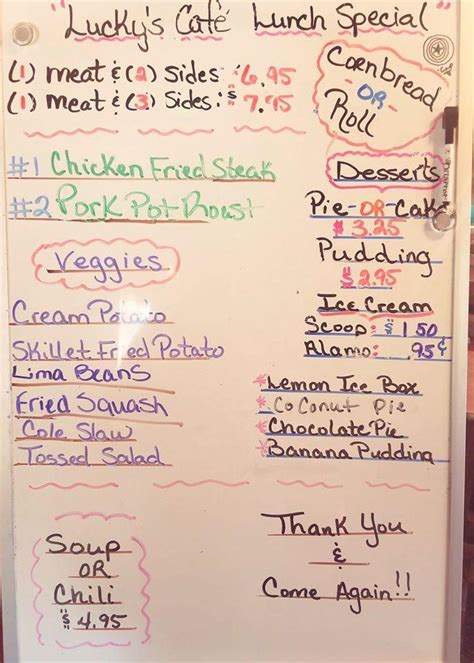 "Lucky's Café Lunch Special"
(1) meat & (2) Sides : $6.95
(1) meat & (3) Sides : $7.95
Cornbread
OR
Roll
#1 Chicken Fried Steak
#2 Pork Pot Roast
Veggies
Cream Potato
Skillet Fried Potato
Lima Beans
Fried Squash
Cole Slaw
Tossed Salad
Desserts
Pie -OR- Cake
$3.25
Pudding
$2.95
Ice Cream
Scoop: $1.50
Alamo: .95¢
*Lemon Ice Box
*Coconut Pie
*Chocolate Pie
*Banana Pudding
Soup
OR
Chili
$4.95
Thank You
&
Come Again!!